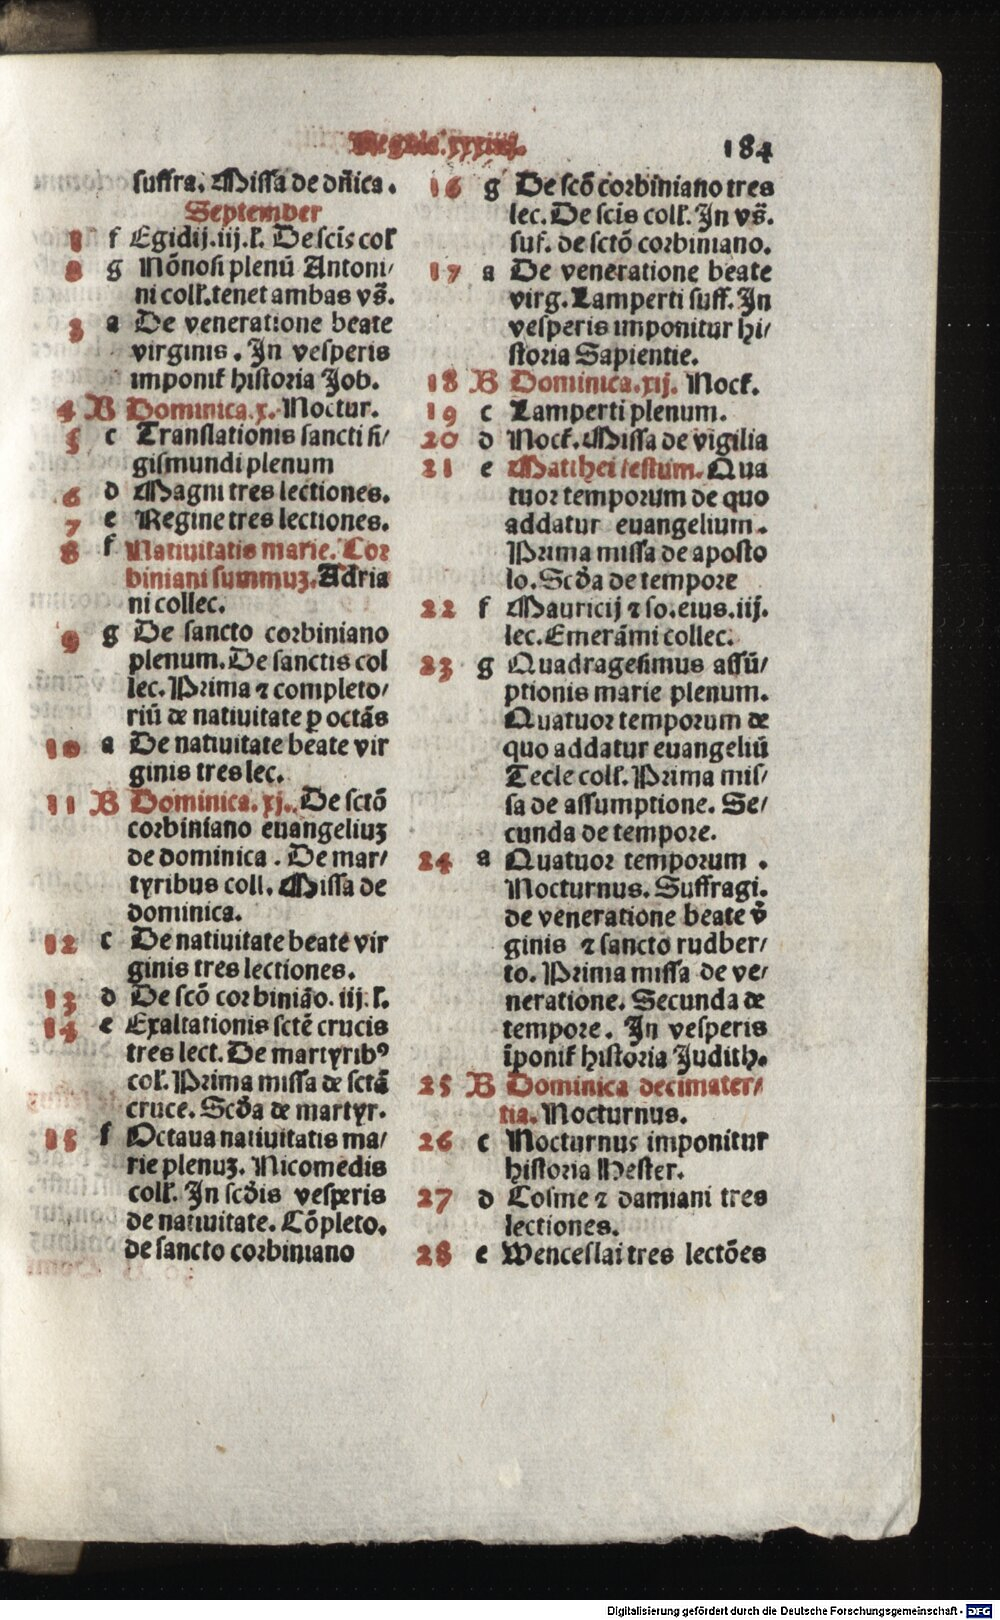 Regula. xxxiiij. 184
suffra. Missa de dñica.
September
1 f Egidij. iij. l. De scis col
2 g Nõnosi plenũ Antoni/
ni coll. tenet ambas vs̃.
3 a De veneratione beate
virginis. In vesperis
imponit historia Job.
4 B Dominica. x. Noctur.
5 c Translationis sancti si/
gismundi plenum
6 d Magni tres lectiones.
7 e Regine tres lectiones.
8 f Natiuitatis marie. Cor
biniani summuꝫ. Adria
ni collec.
9 g De sancto corbiniano
plenum. De sanctis col
lec. Prima ⁊ completo/
riũ de natiuitate ꝑ octãs
10 a De natiuitate beate vir
ginis tres lec.
11 B Dominica. xj. De sctõ
corbiniano euangeliuꝫ
de dominica. De mar/
tyribus coll. Missa de
dominica.
12 c De natiuitate beate vir
ginis tres lectiones.
13 d De scõ corbinião. iij. l.
14 e Exaltationis sctẽ crucis
tres lect. De martyribꝰ
col. Prima missa de sctã
cruce. Scḋa de martyr.
15 f Octaua natiuitatis ma/
rie plenuꝫ. Nicomedis
coll. In scḋis vesperis
de natiuitate. Cõpleto.
de sancto corbiniano
16 g De scõ corbiniano tres
lec. De scis coll. In vs̃.
suf. de sctõ corbiniano.
17 a De veneratione beate
virg. Lamperti suff. In
vesperis imponitur hi/
storia Sapientie.
18 B Dominica. xij. Noct.
19 c Lamperti plenum.
20 d Noct. Missa de vigilia
21 e Matthei festum. Qua
tuor temporum de quo
addatur euangelium.
Prima missa de aposto
lo. Scḋa de tempore
22 f Mauricij ⁊ so. eius. iij.
lec. Emerãmi collec.
23 g Quadragesimus assũ/
ptionis marie plenum.
Quatuor temporum de
quo addatur euangeliũ
Tecle coll. Prima mis/
sa de assumptione. Se/
cunda de tempore.
24 a Quatuor temporum.
Nocturnus. Suffragi.
de veneratione beate v̾
ginis ⁊ sancto rudber/
to. Prima missa de ve/
neratione. Secunda de
tempore. In vesperis
ĩponit historia Judith.
25 B Dominica decimater/
tia. Nocturnus.
26 c Nocturnus imponitur
historia Hester.
27 d Cosme ⁊ damiani tres
lectiones.
28 e Wenceslai tres lectões
Digitalisierung gefördert durch die Deutsche Forschungsgemeinschaft - DFG